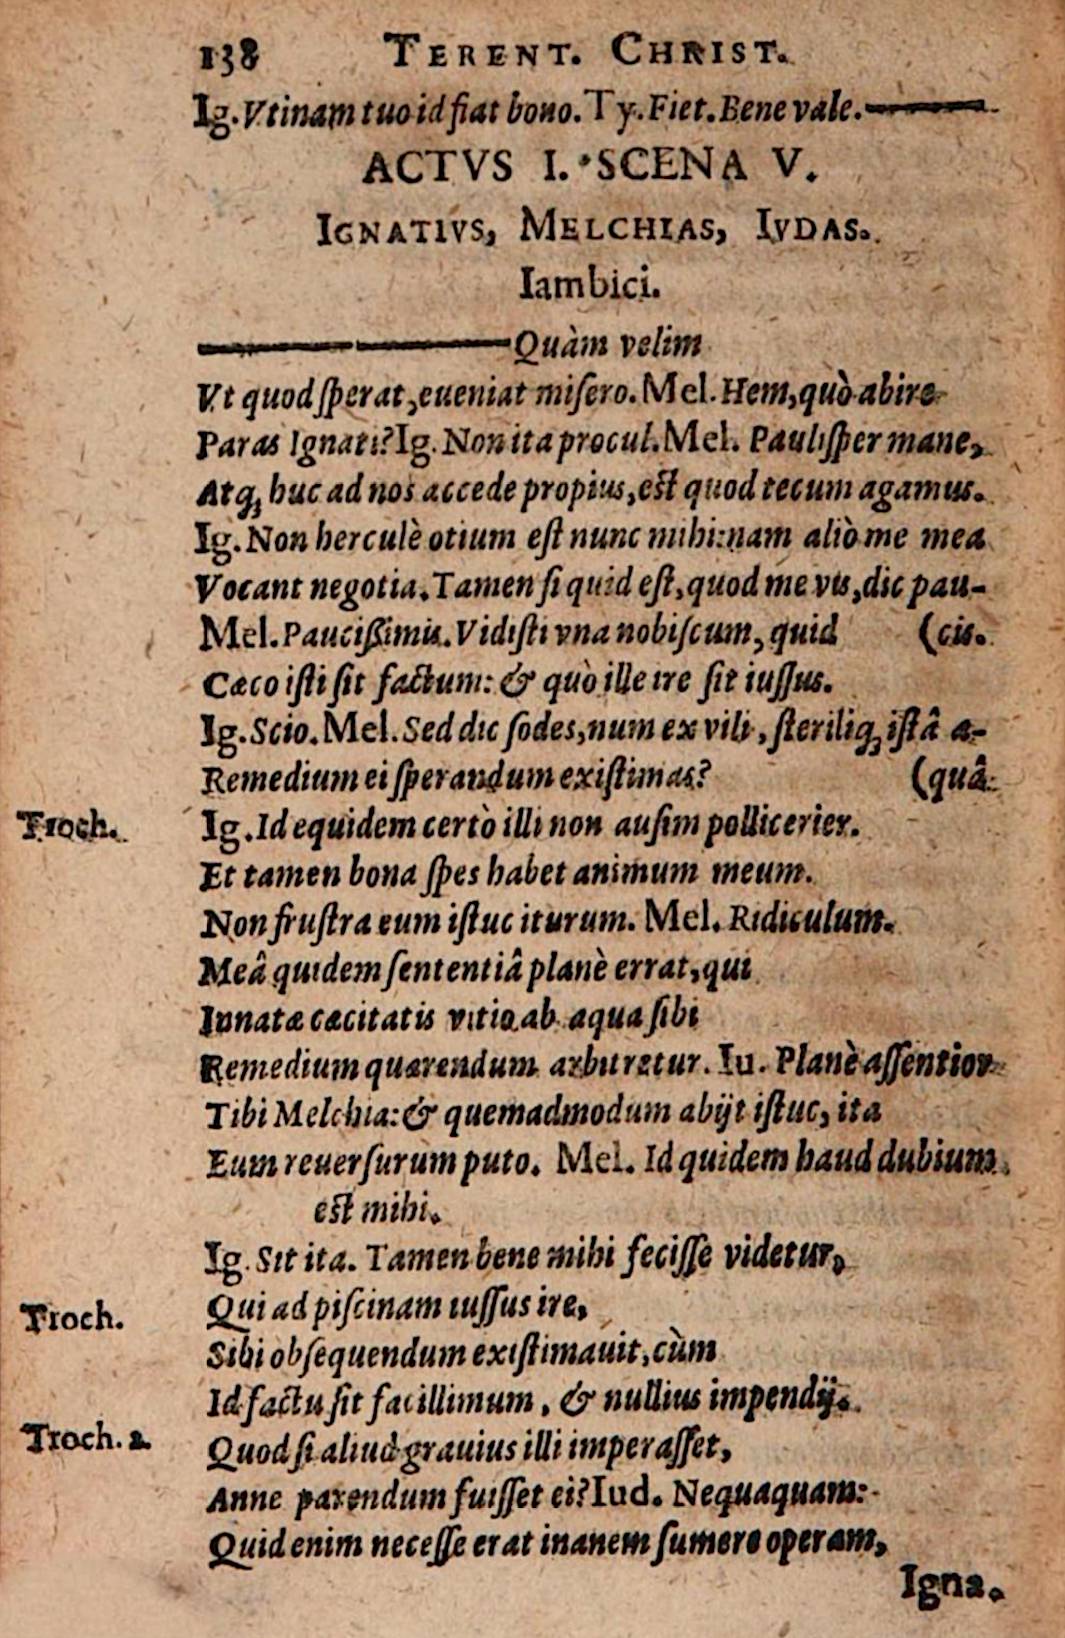 138 TERENT. CHRIST.
Ig. Vtinam tuo id fiat bono. Ty. Fiet. Bene vale.
ACTVS I. SCENA V.
IGNATIVS, MELCHIAS, IVDAS.
Iambici.
Quàm velim
Vt quod ſperat, eueniat miſero. Mel. Hem, quò abire
Paras Ignati? Ig. Non ita procul. Mel. Pauliſper mane,
Atq; huc ad nos accede propius, eſt quod tecum agamus.
Ig. Non herculè otium eſt nunc mihi: nam aliò me mea
Vocant negotia. Tamen ſi quid eſt, quod me vis, dic pau-
Mel. Pauciſsimis. Vidiſti vna nobiſcum, quid (cis.
Cæco iſti ſit factum: & quò ille ire ſit iuſſus.
Ig. Scio. Mel. Sed dic ſodes, num ex vili, ſteriliq; iſtâ a-
Remedium ei ſperandum exiſtimas? (quâ
Troch. Ig. Id equidem certò illi non auſim pollicerier.
Et tamen bona ſpes habet animum meum.
Non fruſtra eum iſtuc iturum. Mel. Ridiculum.
Meâ quidem ſententiâ planè errat, qui
Innatæ cæcitatis vitio ab aqua ſibi
Remedium quærendum arbitretur. Iu. Planè aſſentior
Tibi Melchia: & quemadmodum abijt iſtuc, ita
Eum reuerſurum puto. Mel. Id quidem haud dubium
eſt mihi.
Ig. Sit ita. Tamen bene mihi feciſſe videtur,
Troch. Qui ad piſcinam iuſſus ire,
Sibi obſequendum exiſtimauit, cùm
Id factu ſit facillimum, & nullius impendij.
Troch. 2. Quod ſi aliud grauius illi imperaſſet,
Anne parendum fuiſſet ei? Iud. Nequaquam:
Quid enim neceſſe erat inanem ſumere operam,
Igna.